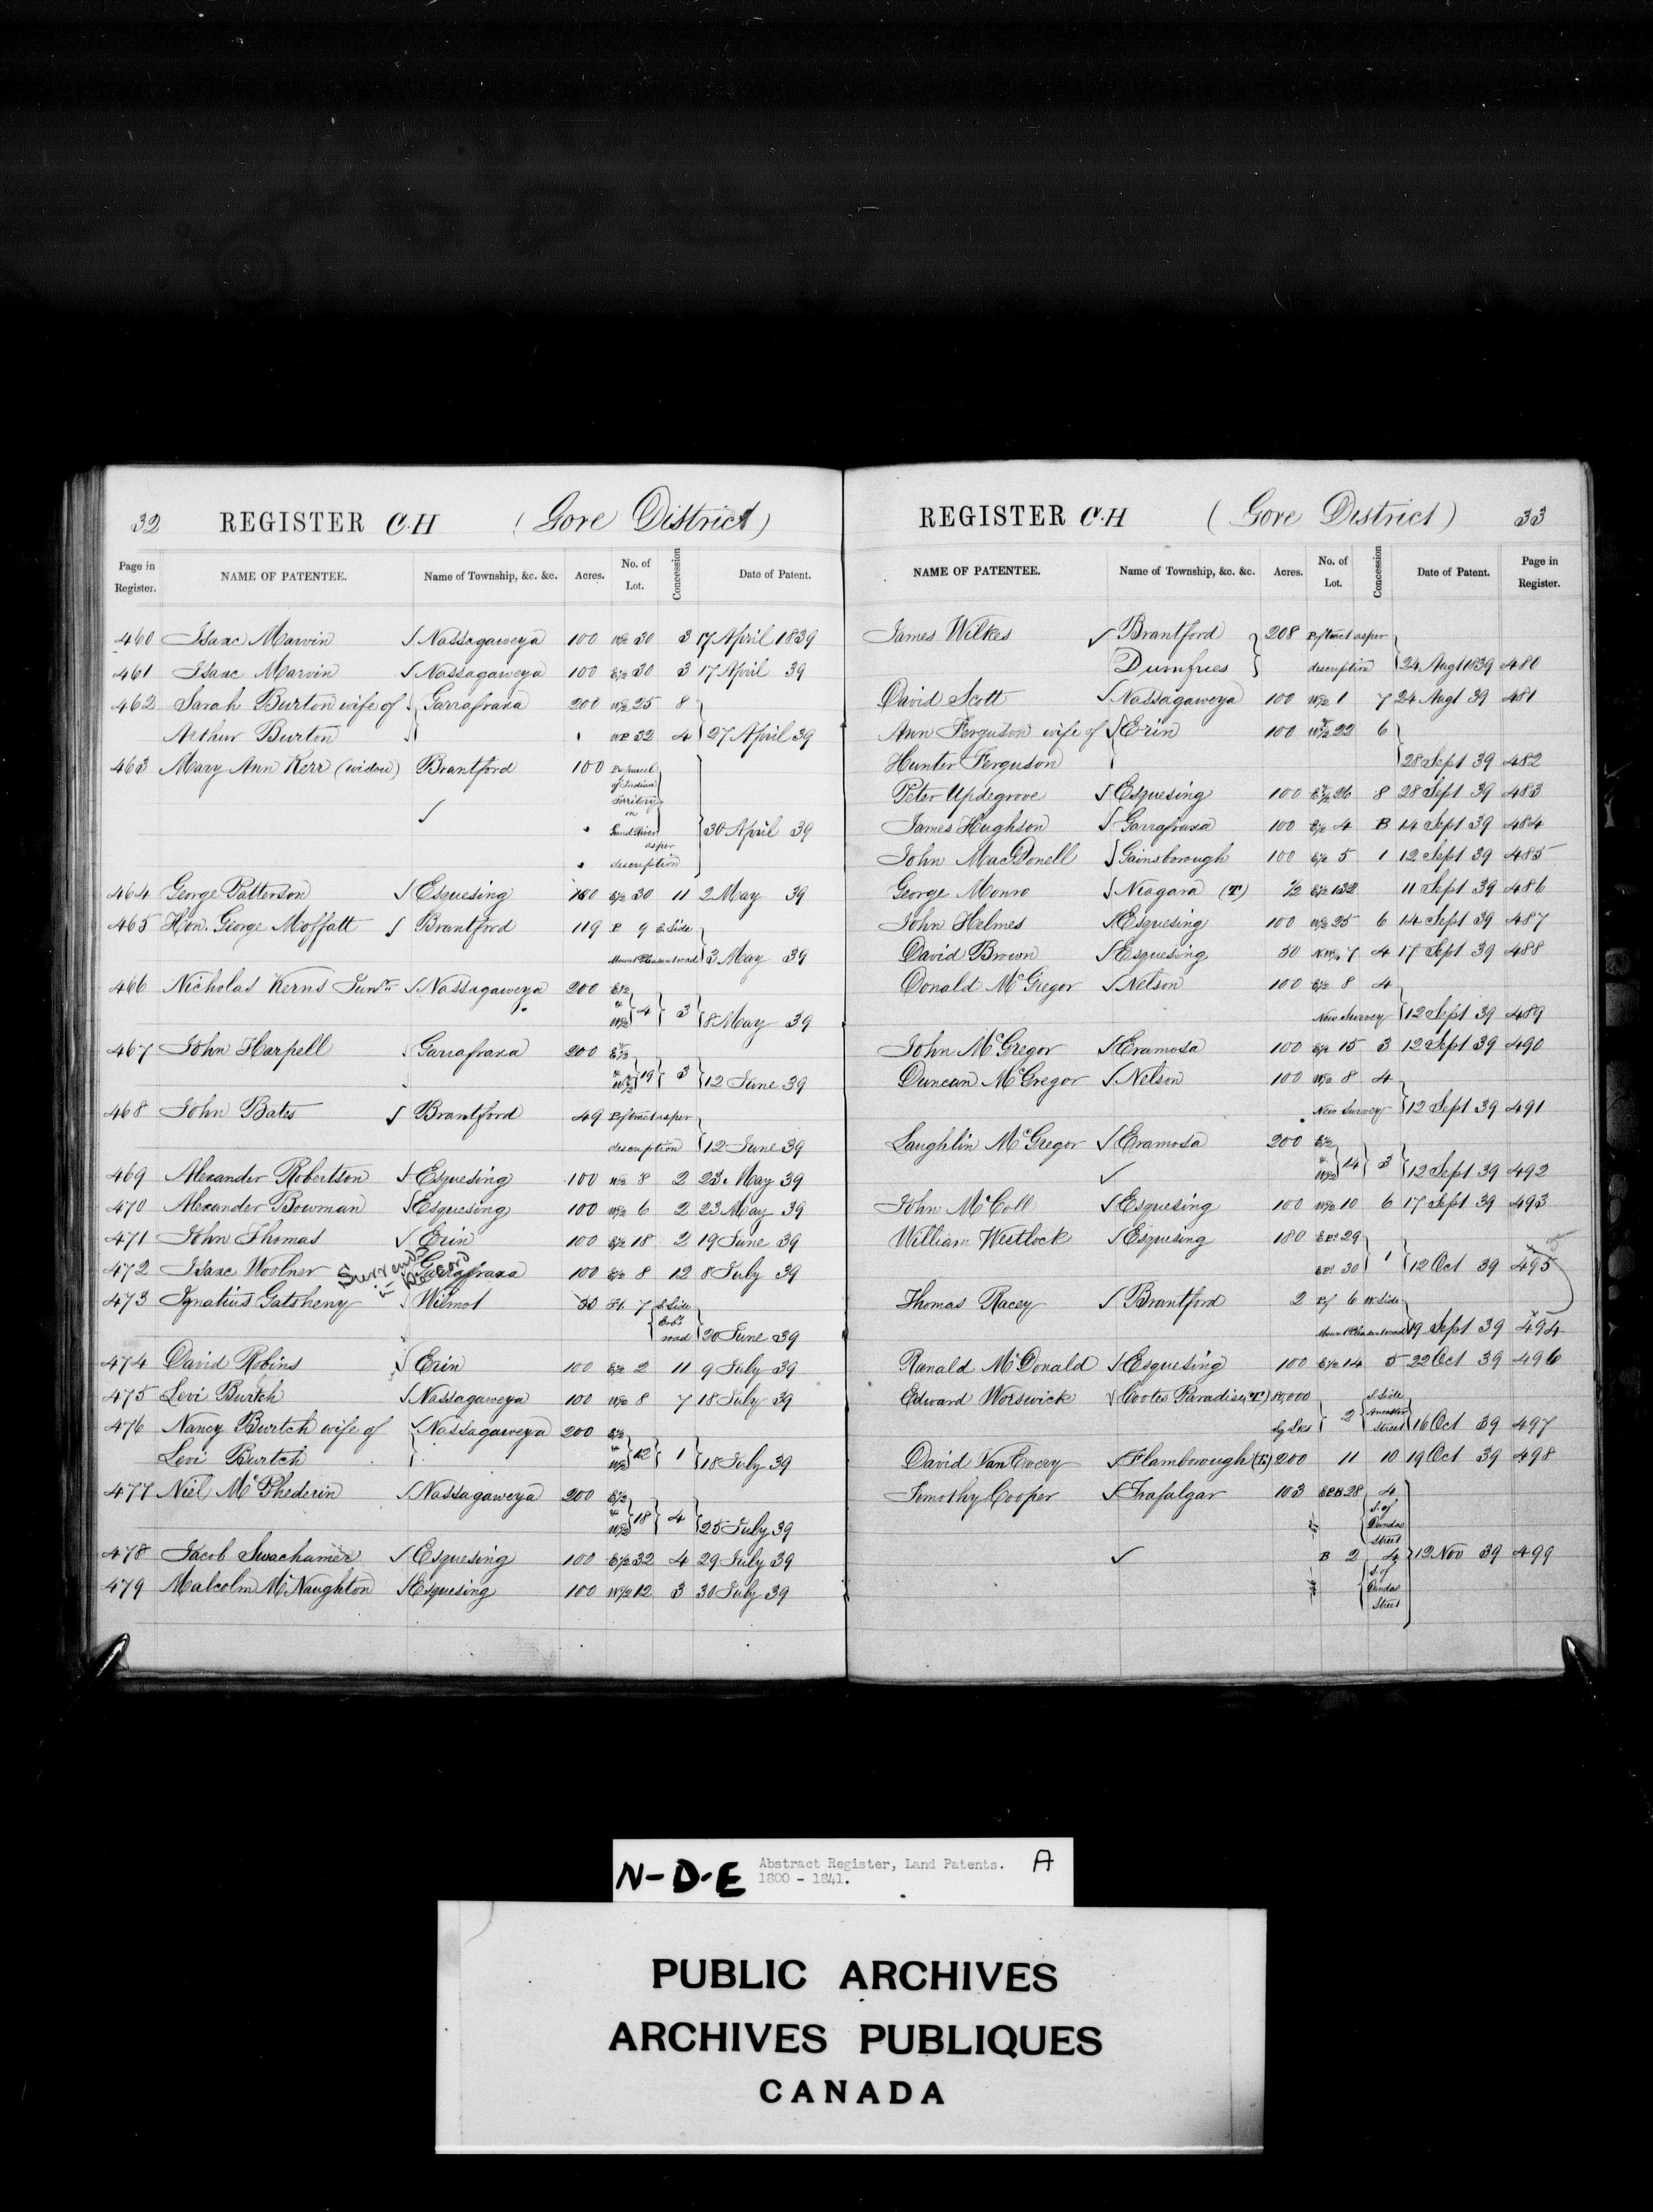 32 REGISTER C.H (Gore District)
Page in Register. NAME OF PATENTEE. Name of Township, &c. &c. Acres. No. of Lot. Concession Date of Patent.
460 Isaac Marvin √ Nassagaweya 100 W½ 30 3 17 April 1839
461 Isaac Marvin √ Nassagaweya 100 E½ 30 3 17 April 39
462 Sarah Burton wife of √ Garrafraxa 200 W½ 25 8
Arthur Burton 32 4 27 April 39
463 Mary Ann Kerr (widow) Brantford 100 Pt parcel
of Indian
Territory
√ on
Grand River 30 April 39
as per
description
464 George Patterson √ Esquesing 100 E½ 30 11 2 May 39
465 Hon. George Moffatt √ Brantford 119 P 9 E Side
Mount Pleasant road 3 May 39
466 Nicholas Kerns Junr √ Nassagaweya 200 E½
& 4 3
W½ 8 May 39
467 John Harpell Garrafraxa 200 E½
& 19 3
W½ 12 June 39
468 John Bates √ Brantford 49 P of tract as per
description 12 June 39
469 Alexander Robertson √ Esquesing 100 W½ 8 2 23 May 39
470 Alexander Bowman √ Esquesing 100 W½ 6 2 23 May 39
471 John Thomas √ Erin 100 E½ 18 2 19 June 39
472 Isaac Woolner Garrafraxa 100 E½ 8 12 8 July 39
473 Ignatius Gatsheny Wilmot 50 Ft. 7 S. Side
road 20 June 39
474 David Robins √ Erin 100 E½ 2 11 9 July 39
475 Levi Burtch √ Nassagaweya 100 W½ 8 7 18 July 39
476 Nancy Burtch wife of √ Nassagaweya 200 E½
Levi Burtch & W½ 12 1 18 July 39
477 Niel McPhederin √ Nassagaweya 200 E½
& 18 4
W½ 25 July 39
478 Jacob Swachamer √ Esquesing 100 E½ 32 4 29 July 39
479 Malcolm McNaughton √ Esquesing 100 W½ 12 3 30 July 39
REGISTER C.H (Gore District) 33
NAME OF PATENTEE. Name of Township, &c. &c. Acres. No. of Lot. Concession Date of Patent. Page in Register.
James Wilkes √ Brantford 208 P of tract as per
Dumfries description 24 Augt 1839 480
David Scott √ Nassagaweya 100 W½ 1 7 24 Augt 39 481
Ann Ferguson wife of √ Erin 100 W½ 22 6
Hunter Ferguson 28 Sept 39 482
Peter Updegrove √ Esquesing 100 E½ 26 8 28 Sept 39 483
James Hughson √ Garrafraxa 100 E½ 4 B 14 Sept 39 484
John MacDonell √ Gainsborough 100 E½ 5 1 12 Sept 39 485
George Monro √ Niagara (T) ½ E½ 132 11 Sept 39 486
John Helmes √ Esquesing 100 W½ 25 6 14 Sept 39 487
David Brown √ Esquesing 50 7 4 17 Sept 39 488
Donald McGregor √ Nelson 100 E½ 8 4
New Survey 12 Sept 39 489
John McGregor √ Eramosa 100 E½ 15 3 12 Sept 39 490
Duncan McGregor √ Nelson 100 W½ 8 4
New Survey 12 Sept 39 491
Laughlin McGregor √ Eramosa 200 E½
√ & W½ 14 3 12 Sept 39 492
John McColl √ Esquesing 100 W½ 10 6 17 Sept 39 493
William Westlock √ Esquesing 180 E Pt 29
E Pt 30 1 12 Oct 39 495
Thomas Racey √ Brantford 2 P of 6 W Side
Mount Pleasant road 19 Sept 39 494
Ranald McDonald √ Esquesing 100 E½ 14 5 22 Oct 39 496
Edward Worswick √ Cootes Paradise (T) 10,000 S. Side
Sq Lks 2 Ancaster
Street 16 Oct 39 497
David VanEvery √ Flamborough 200 11 10 19 Oct 39 498
Timothy Cooper √ Trafalgar 103 28 4
S. of
Dundas
Street
√ B 2 4 12 Nov 39 499
S. of
Dundas
Street
N-D-E Abstract Register, Land Patents. A
1800 - 1841.
PUBLIC ARCHIVES
ARCHIVES PUBLIQUES
CANADA